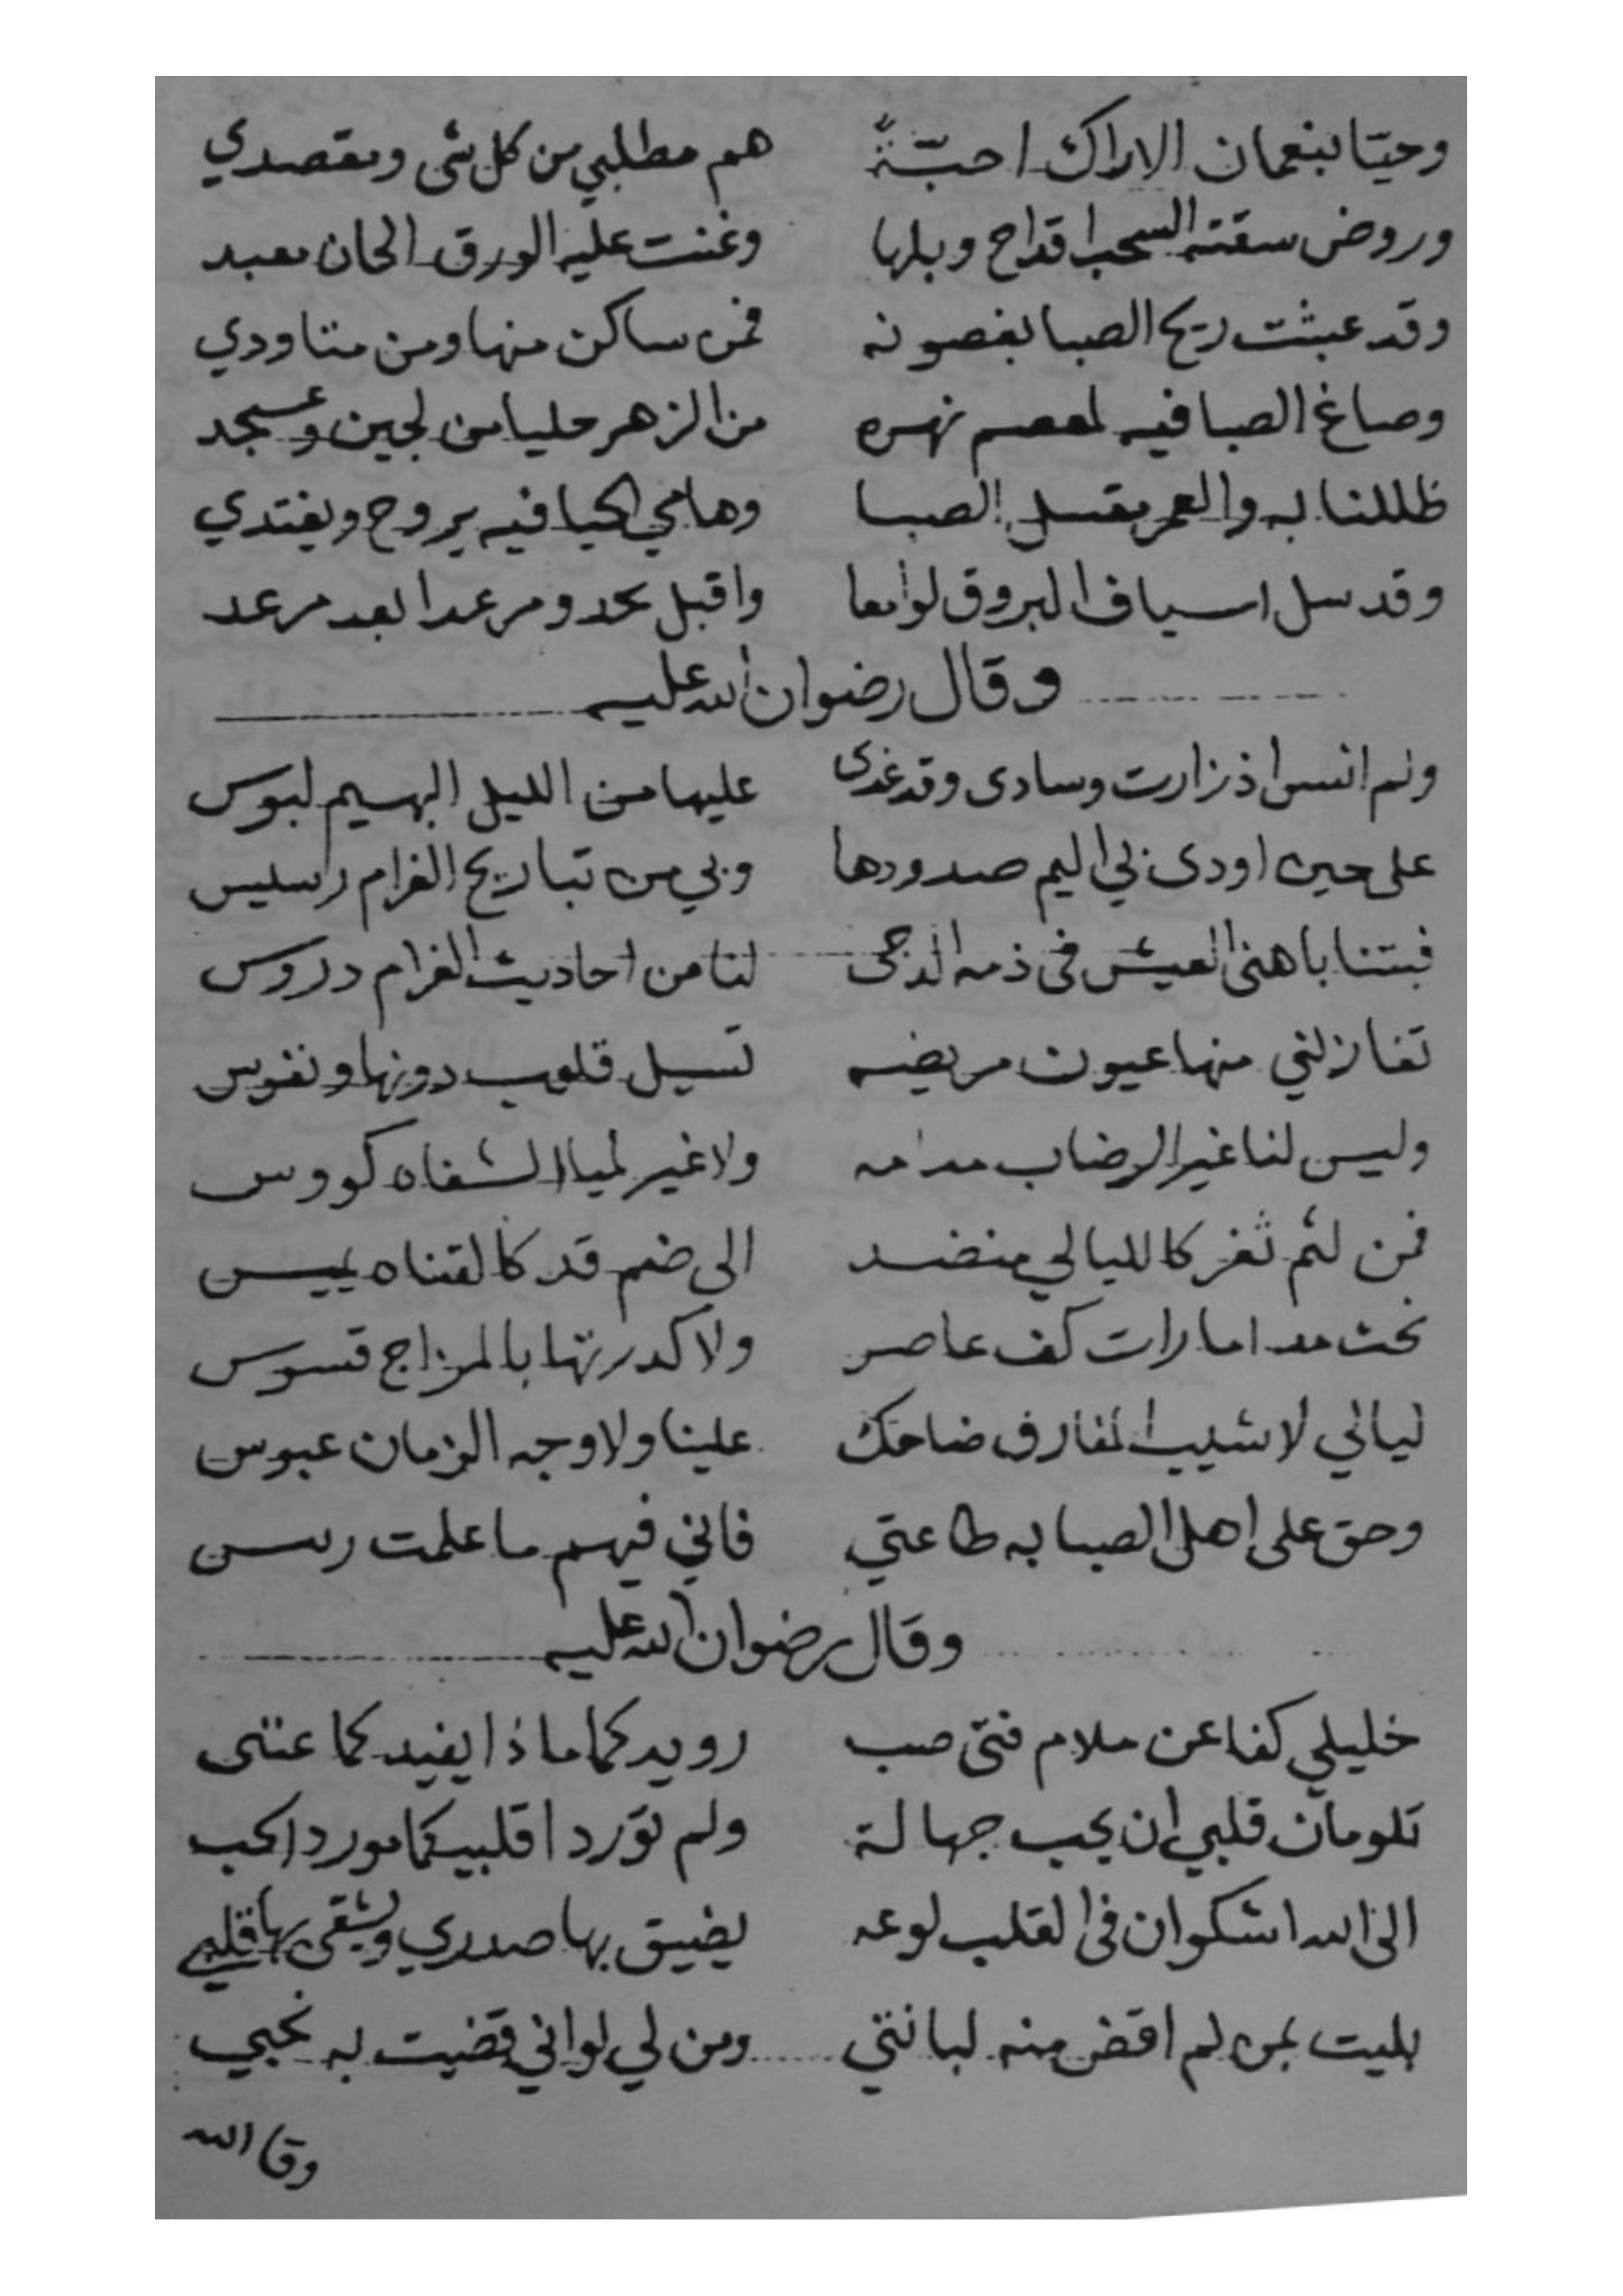 وحيّا بنعمان الاراك احبّةً هم مطلبي من كل شى ومقصدي
وروض سقته السحب اقداح وبلها وغنت عليه الورق الحان معبد
وقد عبثت ريح الصبا بغصونه فمن ساكن منها ومن متاودي
وصاغ الصبا فيه لمعصم نهره من الزهر حليا من لجين وعسجد
ظللنا به والعمر مقتبل الصبا وهامي الحيا فيه يروح ويغتدي
وقد سل اسياف البروق لوامعا واقبل يحدو مرعدا بعد مرعد
وقال رضوان الله عليه
ولم انس اذ زارت وسادى وقد غدى عليها من الليل البهيم لبوس
على حين اودى بي اليم صدودها وبي من تباريح الغرام رسيس
فبتنا باهنى العيش في ذمه الدجى لنا من احاديث الغرام دروس
تغازلني منها عيون مريضه تسيل قلوب دونها ونفوس
وليس لنا غير الرضاب مدامه ولا غير لميا الشفاه كووس
فمن لثم ثغر كالليالي منضد الى ضم قد كالقناه يميس
نحث مداما رات كف عاصر ولا كدرتها بالمزاج قسوس
ليالي لا شيب المفارق ضاحك علينا ولا وجه الزمان عبوس
وحق على اهل الصبابه طاعتي فاني فيهم ما علمت ريس
وقال رضوان الله عليه
خليلي كفا عن ملام فتى صب رويدكما ماذا يفيدكما عتبى
تلومان قلبي ان يحب جهالة ولم تورد اقلبيكما مورد الحب
الى الله اشكوا ان في القلب لوعه يضيق بها صدري ويشقى بها قلبي
بليت بمن لم اقض منه لبانتي ومن لي لو اني قضيت به نحبي
وقا الله